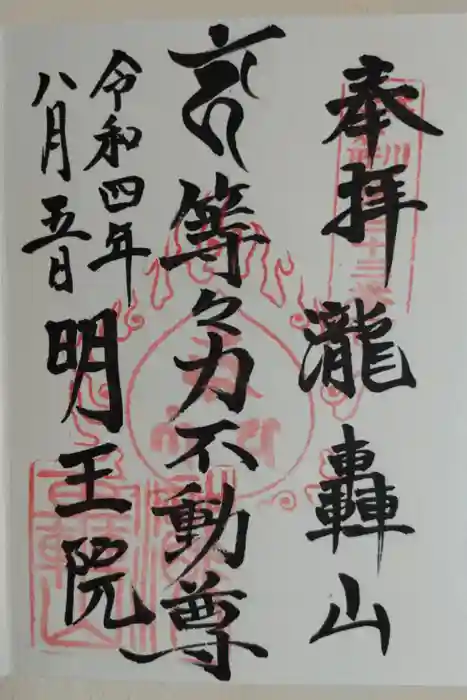 奉拝 瀧轟山
等々力不動尊
令和四年
八月五日
明王院